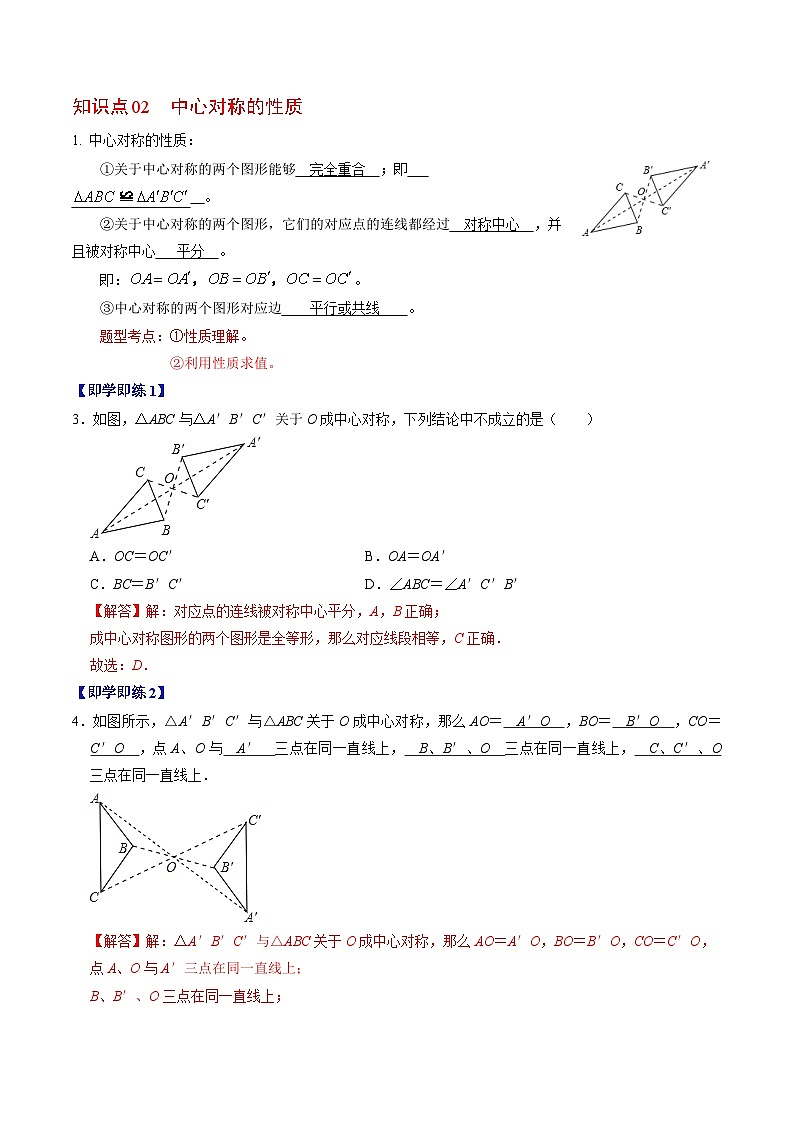 知识点02 中心对称的性质
1. 中心对称的性质：
①关于中心对称的两个图形能够 完全重合 ；即
△ABC≌△A′B′C′ 。
②关于中心对称的两个图形，它们的对应点的连线都经过 对称中心 ，并
且被对称中心 平分 。
即：OA=OA′，OB=OB′，OC=OC′。
③中心对称的两个图形对应边 平行或共线 。
A
B
C
O
B′
A′
C′
题型考点：①性质理解。
②利用性质求值。
【即学即练1】
3．如图，△ABC与△A′B′C′关于O成中心对称，下列结论中不成立的是（ ）
A
B
C
O
B′
A′
C′
A．OC＝OC′ B．OA＝OA′
C．BC＝B′C′ D．∠ABC＝∠A′C′B′
【解答】解：对应点的连线被对称中心平分，A，B正确；
成中心对称图形的两个图形是全等形，那么对应线段相等，C正确．
故选：D．
【即学即练2】
4．如图所示，△A′B′C′与△ABC关于O成中心对称，那么AO＝ A′O ，BO＝ B′O ，CO＝
C′O ，点A、O与 A′ 三点在同一直线上， B、B′、O 三点在同一直线上， C、C′、O
三点在同一直线上．
A
B
C
O
C′
B′
A′
【解答】解：△A′B′C′与△ABC关于O成中心对称，那么AO＝A′O，BO＝B′O，CO＝C′O，
点A、O与A′三点在同一直线上；
B、B′、O三点在同一直线上；